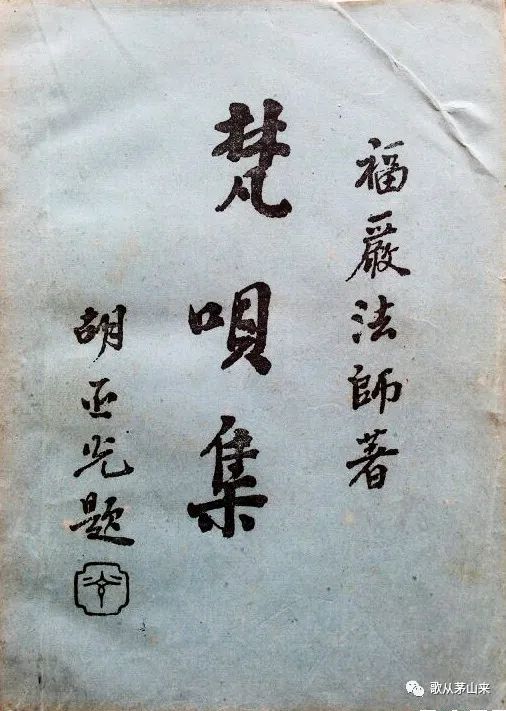 福嚴法師著
梵唄集
胡亚光題
歌从茅山来